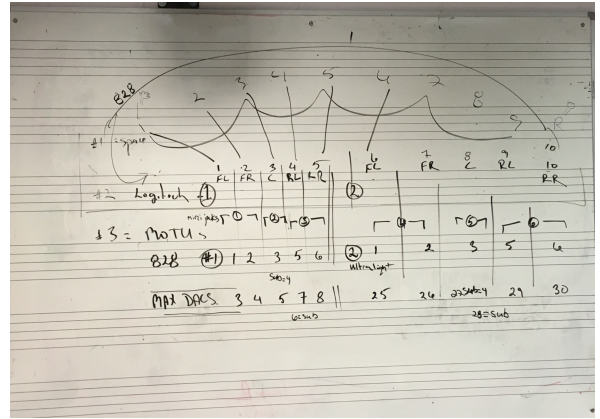 1
828
2 3 4 5 4 7 8 9
#1 = space
1 2 3 4 5 6 7 8 9 10
FL FR C RL RR FL FR C RL 10
RR
#2 Logitech = 1 2
minijacks 1 2 3 4 5 6
#3 = MOTUs
828 #1 1 2 3 5 6 2 1 2 3 5 6
Sub=4 Ultralight
MAX DACS 3 4 5 7 8 25 26 27 Sub=4 29 30
6=sub 28=sub